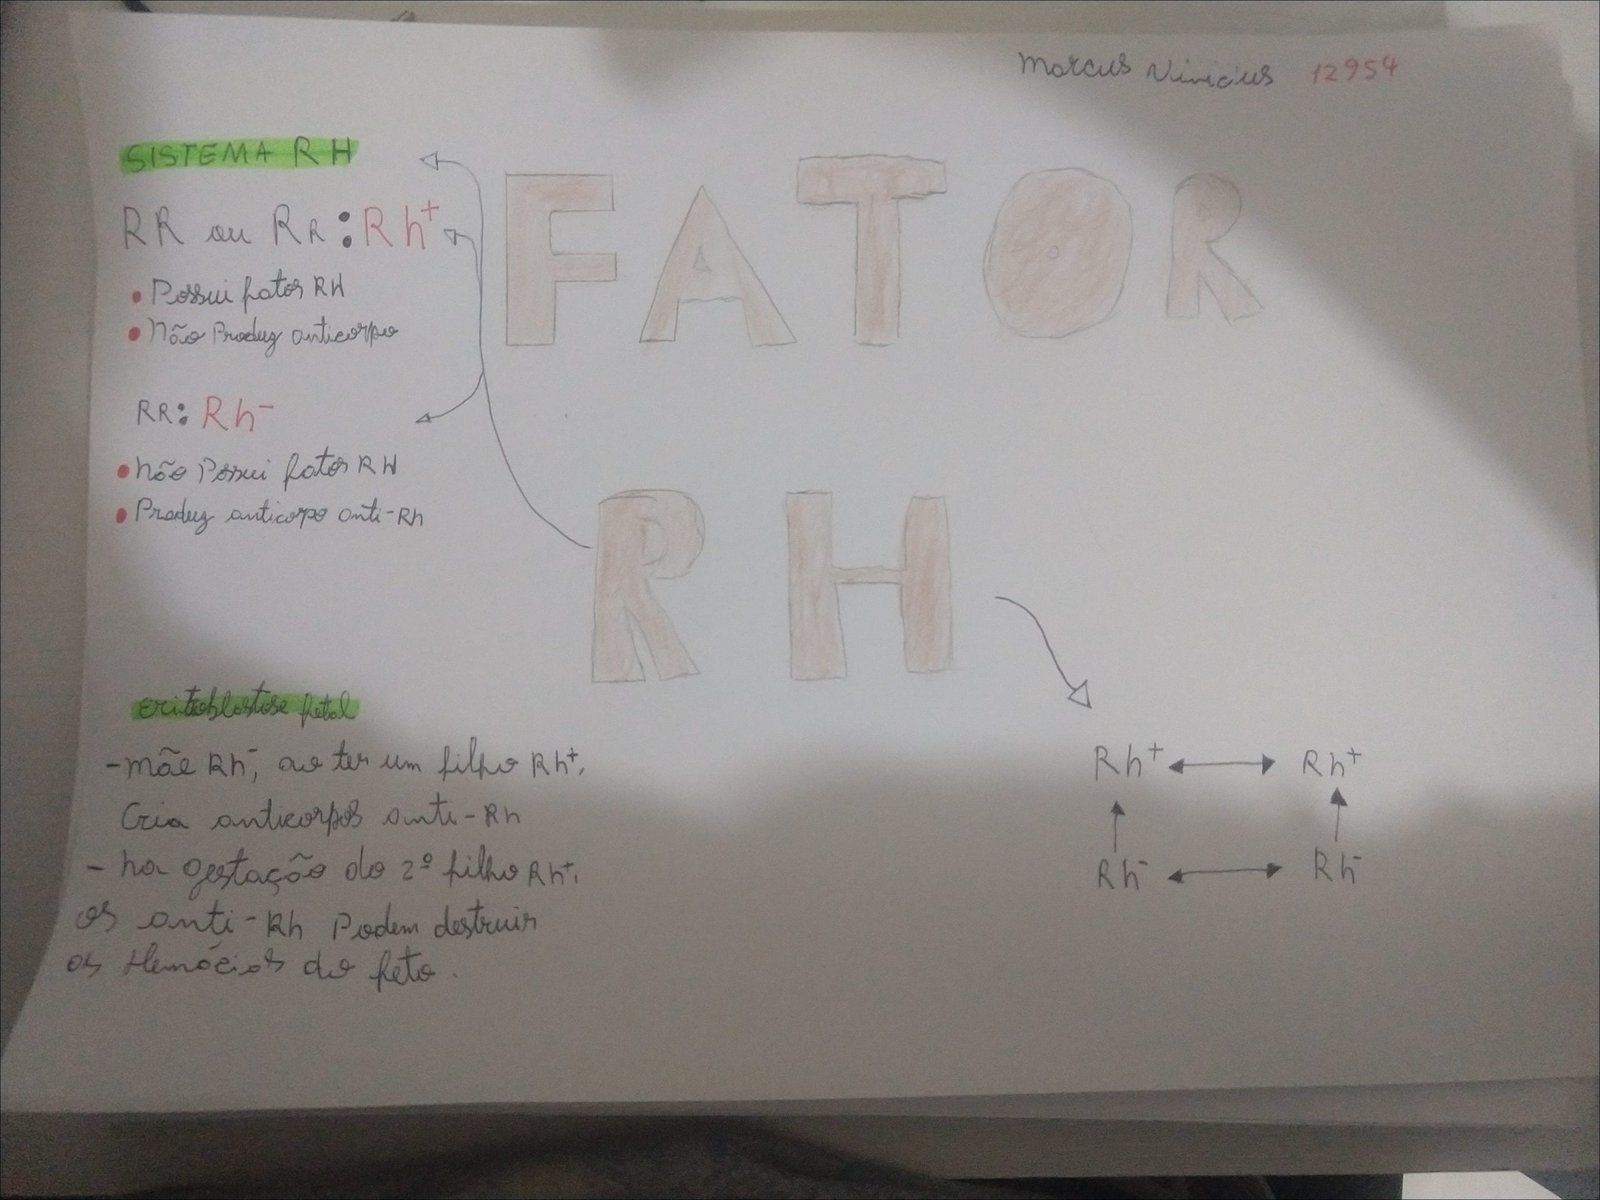 Marcus Vinicius 12954
FATOR
RH
SISTEMA RH
RR ou RR: Rh+
• Possui fator RH
• Não Produz anticorpo
RR: Rh-
• Não Possui fator RH
• Produz anticorpo anti-Rh
eritoblastose fetal
- Mãe Rh-, ao ter um filho Rh+,
Cria anticorpos anti-Rh
- na gestação do 2º filho Rh+,
os anti-Rh Podem destruir
as Hemácias do feto.
Rh+ ↔ Rh+
↑ ↑
Rh- ↔ Rh-